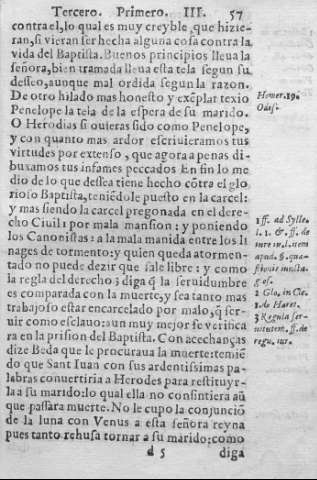 Tercero. Primero. III. 57
contra el, lo qual es muy creyble, que hizie-
ran, si vieran ser hecha alguna cosa contra la
vida del Baptista. Buenos principios lleua la
señora, bien tramada lleua esta tela segun su
desseo, aunque mal ordida segun la razon.
De otro hilado mas honesto y exẽplar texio
Penelope la tela de la espera de su marido.
O Herodias si quieras sido como Penelope,
y con quanto mas ardor escriuieramos tus
virtudes por extenso, que agora a penas di-
buxamos tus infames peccados. En fin lo me
dio de lo que dessea tiene hecho cõtra el glo
rioso Baptista, teniẽdole puesto en la carcel:
y mas siendo la carcel pregonada en el dere-
cho Ciuil: por mala mansion: y poniendo
los Canonistas: a la mala manida entre los li
nages de tormento: y quien queda atormen-
tado no puede dezir que sale libre: y como
la regla del derecho 3 diga q̃ la seruidumbre
es comparada con la muerte, y sea tanto mas
trabajoso estar encarcelado por malo, q̃ ser-
uir como esclauo: aun muy mejor se verifica
en la prision del Baptista. Con acechanças
dize Beda que le procuraua la muerte: temiẽ
do que Sant Iuan con sus ardentissimas pa-
labras conuertiria a Herodes para restituyr-
la a su marido: lo qual ella no consintiera aũ
que passara muerte. No le cupo la conjunciõ
de la luna con Venus a esta señora reyna
pues tanto rehusa tornar a su marido: como
d 5 diga
Homer. 19.
Odis.
1 ff. ad Sylle.
l. 1. &. ff. de
apud. §. quæ-
2 Glo. in Cle.
1. de Hæret.
3 Regula ser-
uitutem. ff. de
regu. iur.